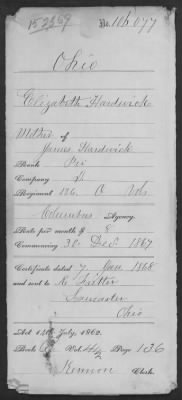 152369 No. 116,077
Ohio
Elizabeth Hardwick
Mother of
James Hardwick
Rank Pri
Company
Regiment 126. O Vols
Columbus Agency.
Rate per month $ 8
Commencing 30 Dec. 1867
Certificate dated 7 Jan 1868
and sent to
Lancaster
Ohio
Act 14th July, 1862.
Book Vol. Page 136
Kennon Clerk.